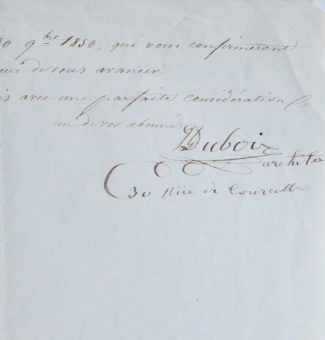 30 9bre 1850, qui vous confirmeront
de vous avancer.
avec une parfaite considération
un de vos abonnés
Duboix
archite
30 Rue de Courcell